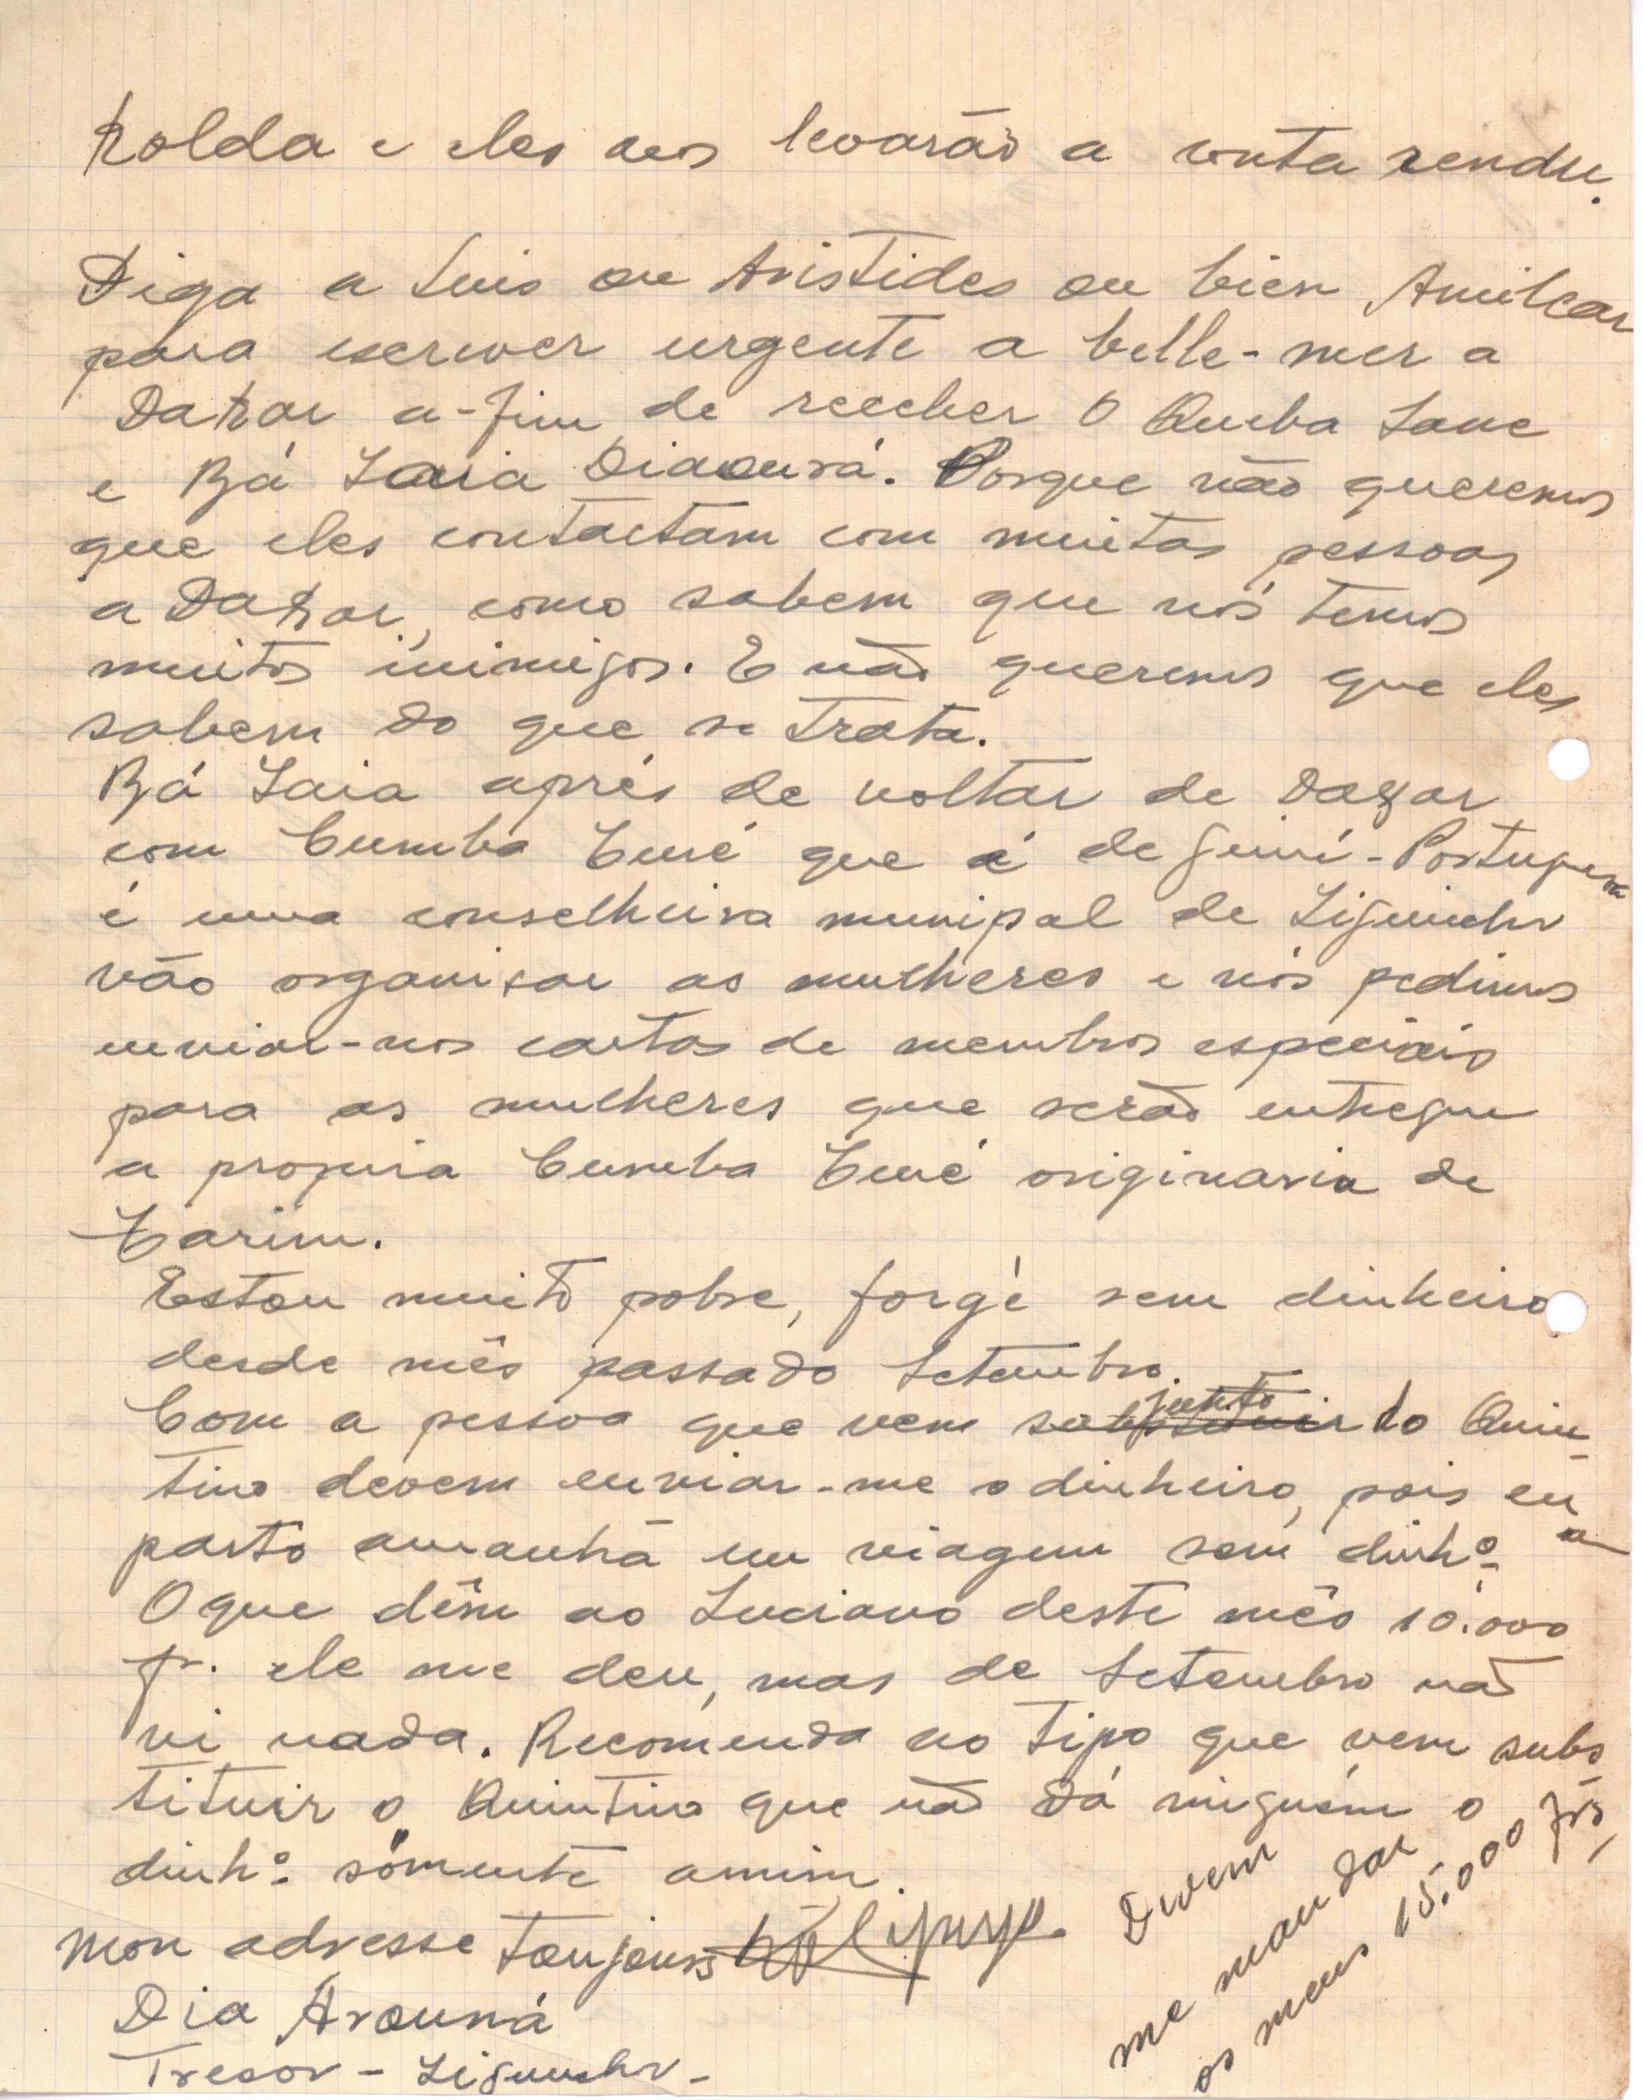 Kolda e eles aos levarão a conta rendu.
Diga a Luis ou Aristides ou bien Amilcar
para escrever urgente a belle-mer a
Dakar a-fim de receber O Queba Sane
e Bá Laia Diaourá. Porque não queremos
que eles contactam com muitas pessoas
a Dakar, como sabem que nós temos
muitos inimigos. E não queremos que eles
sabem do que se trata.
Bá Laia aprés de voltar de Dakar
com Cumba Turé que é de Guiné-Portuguesa
é uma conselheira munipal de Ziguinchor
vão organisar as mulheres e nós pedimos
enviar-nos cartas de membros especiais
para as mulheres que serão entregue
a propria Cumba Turé originaria de
Farim.
Estou muito pobre, forgé sem dinheiro
desde mês passado Setembro.
Com a pessoa que vem junto do Quin-
tino devem enviar-me o dinheiro, pois eu
parto amanhã em viagem sem dinhº.
O que dêm ao Luciano deste mês 10.000
fr. ele me deu, mas de Setembro não
vi nada. Recomenda ao tipo que vem subs
tituir o Quintino que não dá ninguém o
dinhº. sómente amim.
Devem
me mandar
os meus 15.000 frs,
Mon adresse toujours
Dia Arouná
Tresor - Ziguinchor -